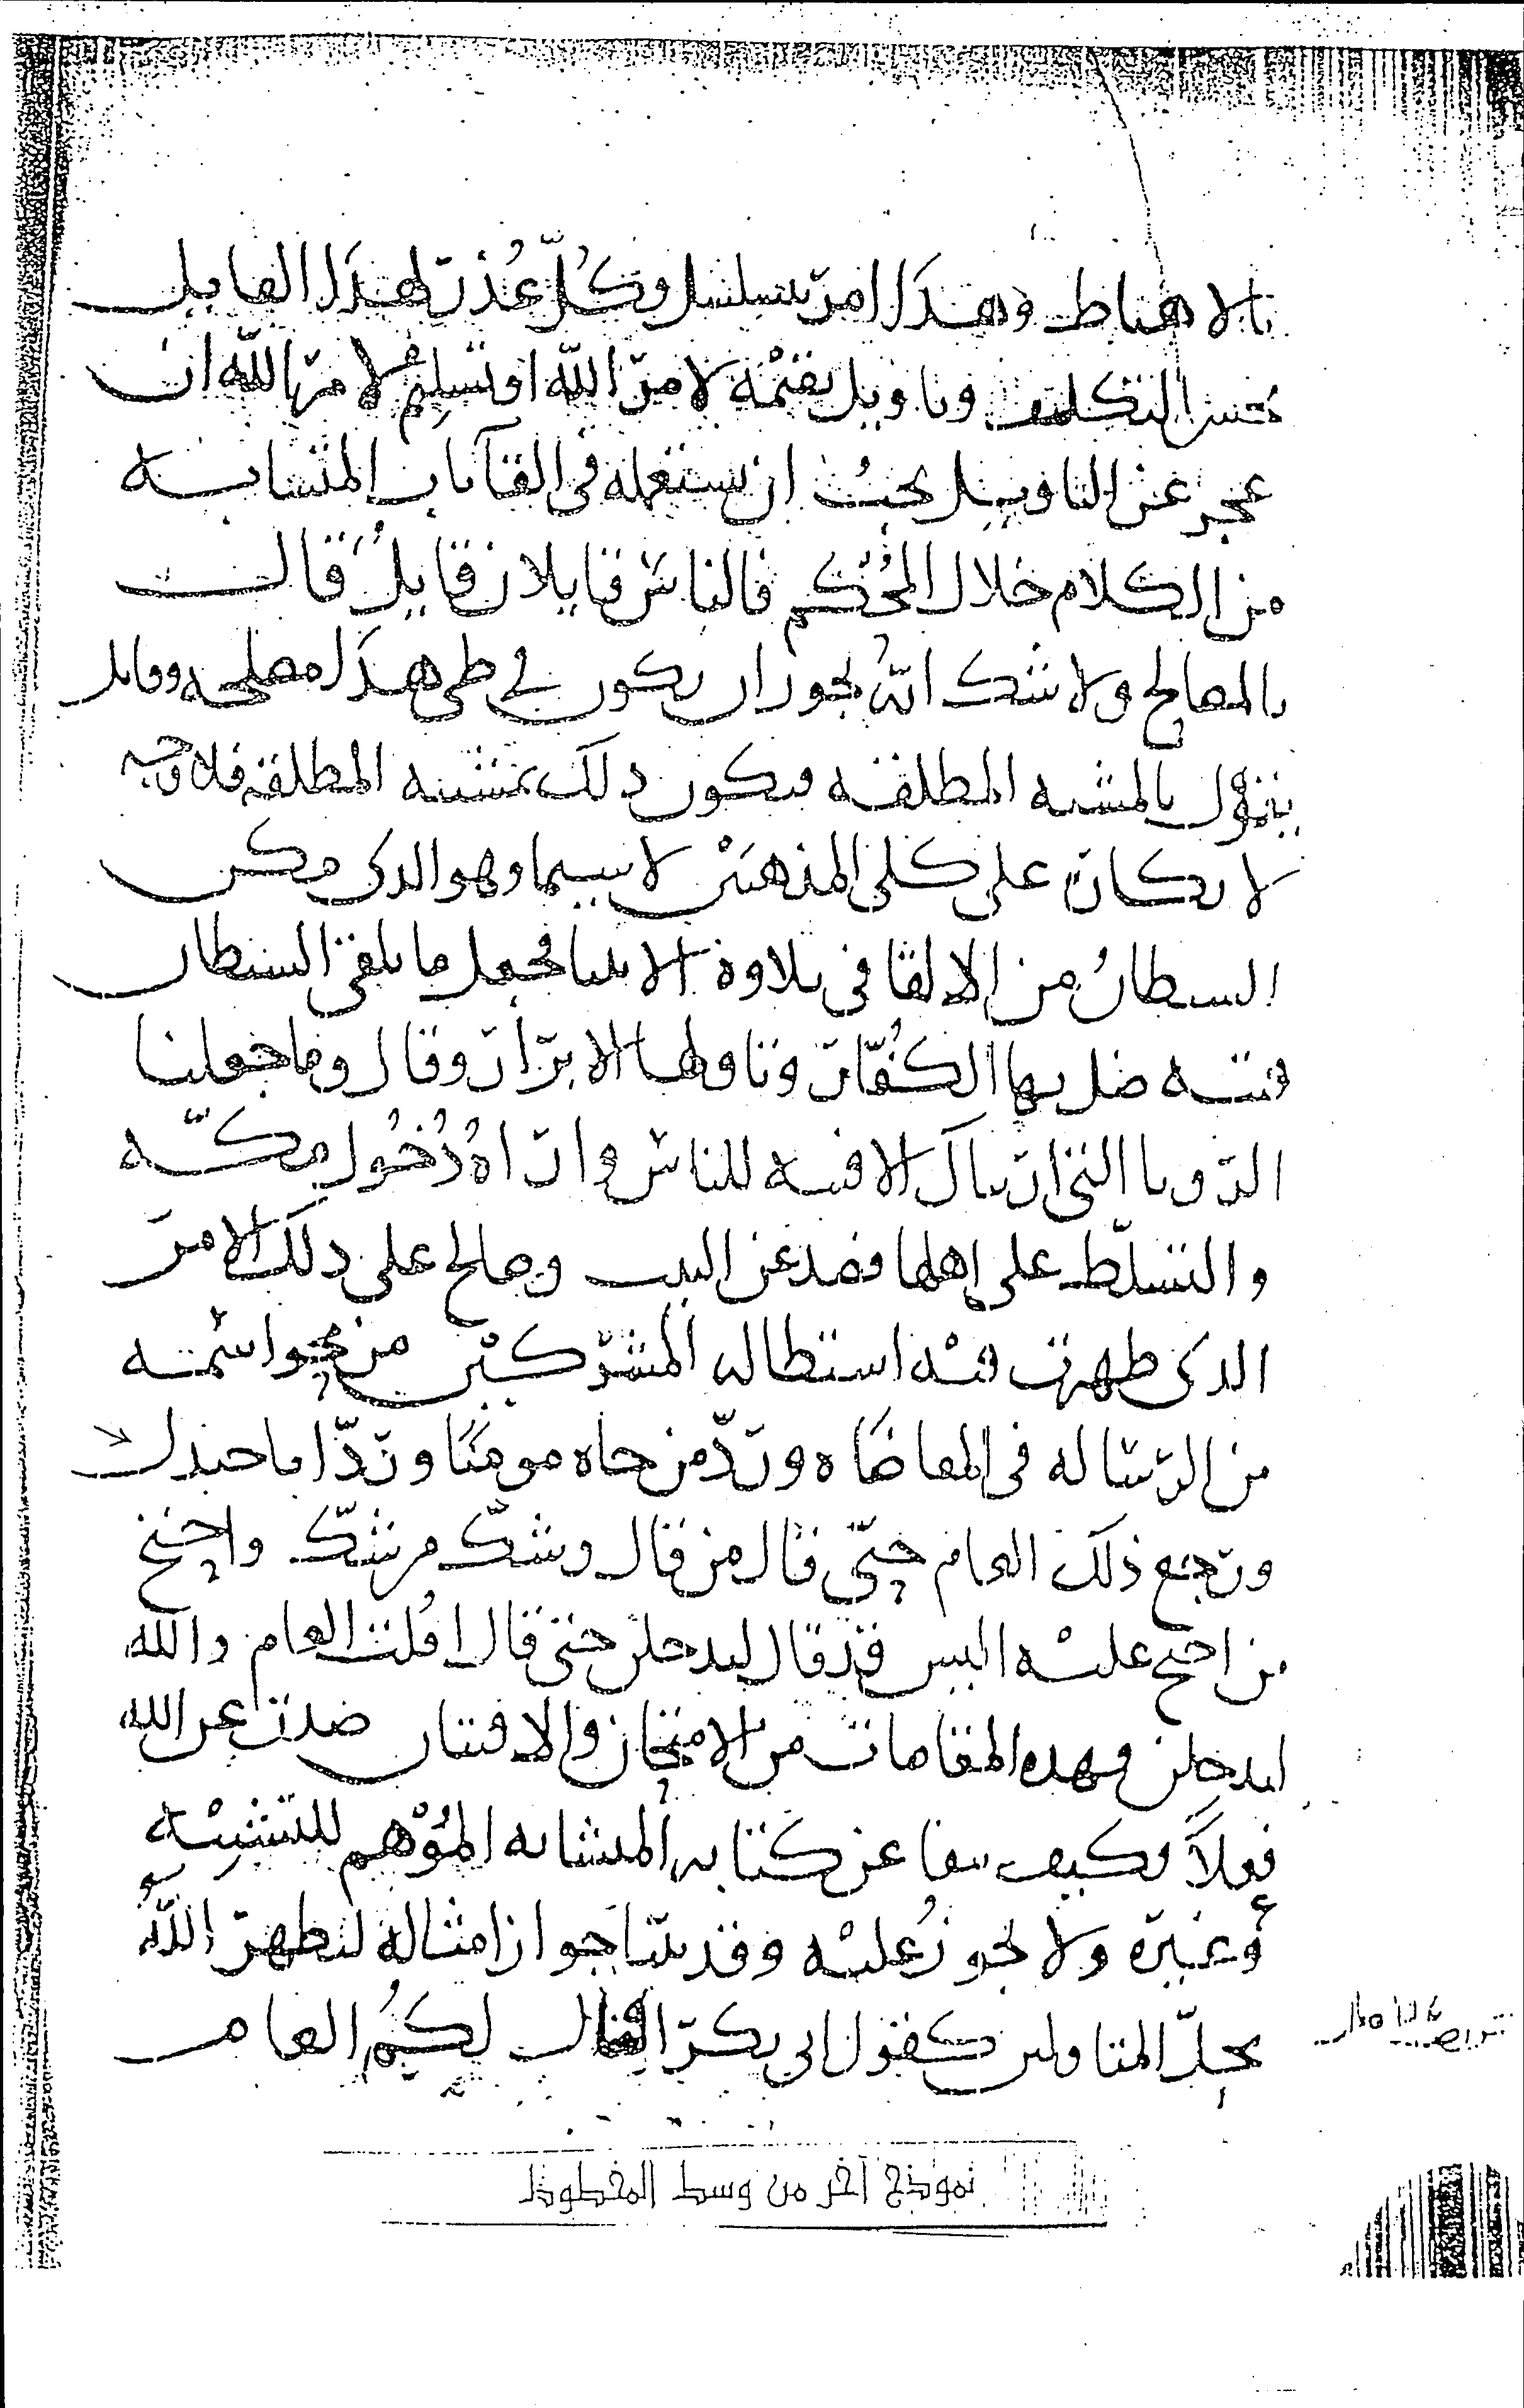 بالاهباط وهذا امر يتسلسل وكل عذر لهذا القايل
يحسن التكليف وتاويل يقيمه لامر الله او تسليم لامر الله ان
عجز عن التاويل يجب ان يستعمله في القآيات المتشابه
من الكلام خلال المحكم فالناس قايلان قايل قال
بالمصالح ولا شك انه يجوز ان يكون في طي هذا مصلحه وقايل
يقول بالمشيه المطلقه فيكون ذلك بمشيه المطلقه فلا وجه
لانكاره على كلي المذهبين لاسيما وهو الذي مكن
الشيطان من الالقا في تلاوة الانبيا فجعل ما يلقي الشيطان
فتنه ضل بها الكفار وتاولها الابرار وقال وما جعلنا
الرويا التي اريناك الا فتنه للناس واراه دخول مكه
والتسلط على اهلها فصد عن البيت وصالح على ذلك الامر
الذي ظهرت فيه استطاله المشركين من محو اسمه
من الرساله في المقاضاه ورد من جاه مومنا ورد ابا جندل
ورجع ذلك العام حتى قال من قال وشك من شك واحتج
من احتج عليه اليس قد قال لتدخلن حتى قال اقلت العام والله
لتدخلن فهذه المقامات من الامتحان والافتتان صدرت عن الله
فعلا فكيف ينفا عن كتابه المتشابه الموهم للتشبيه
وغيره ولا يجوز عليه وقد بينا جواز امثاله ليظهر الله
محل المتاولين كقول ابي بكر اقال لكم العام
نموذج آخر من وسط المخطوط